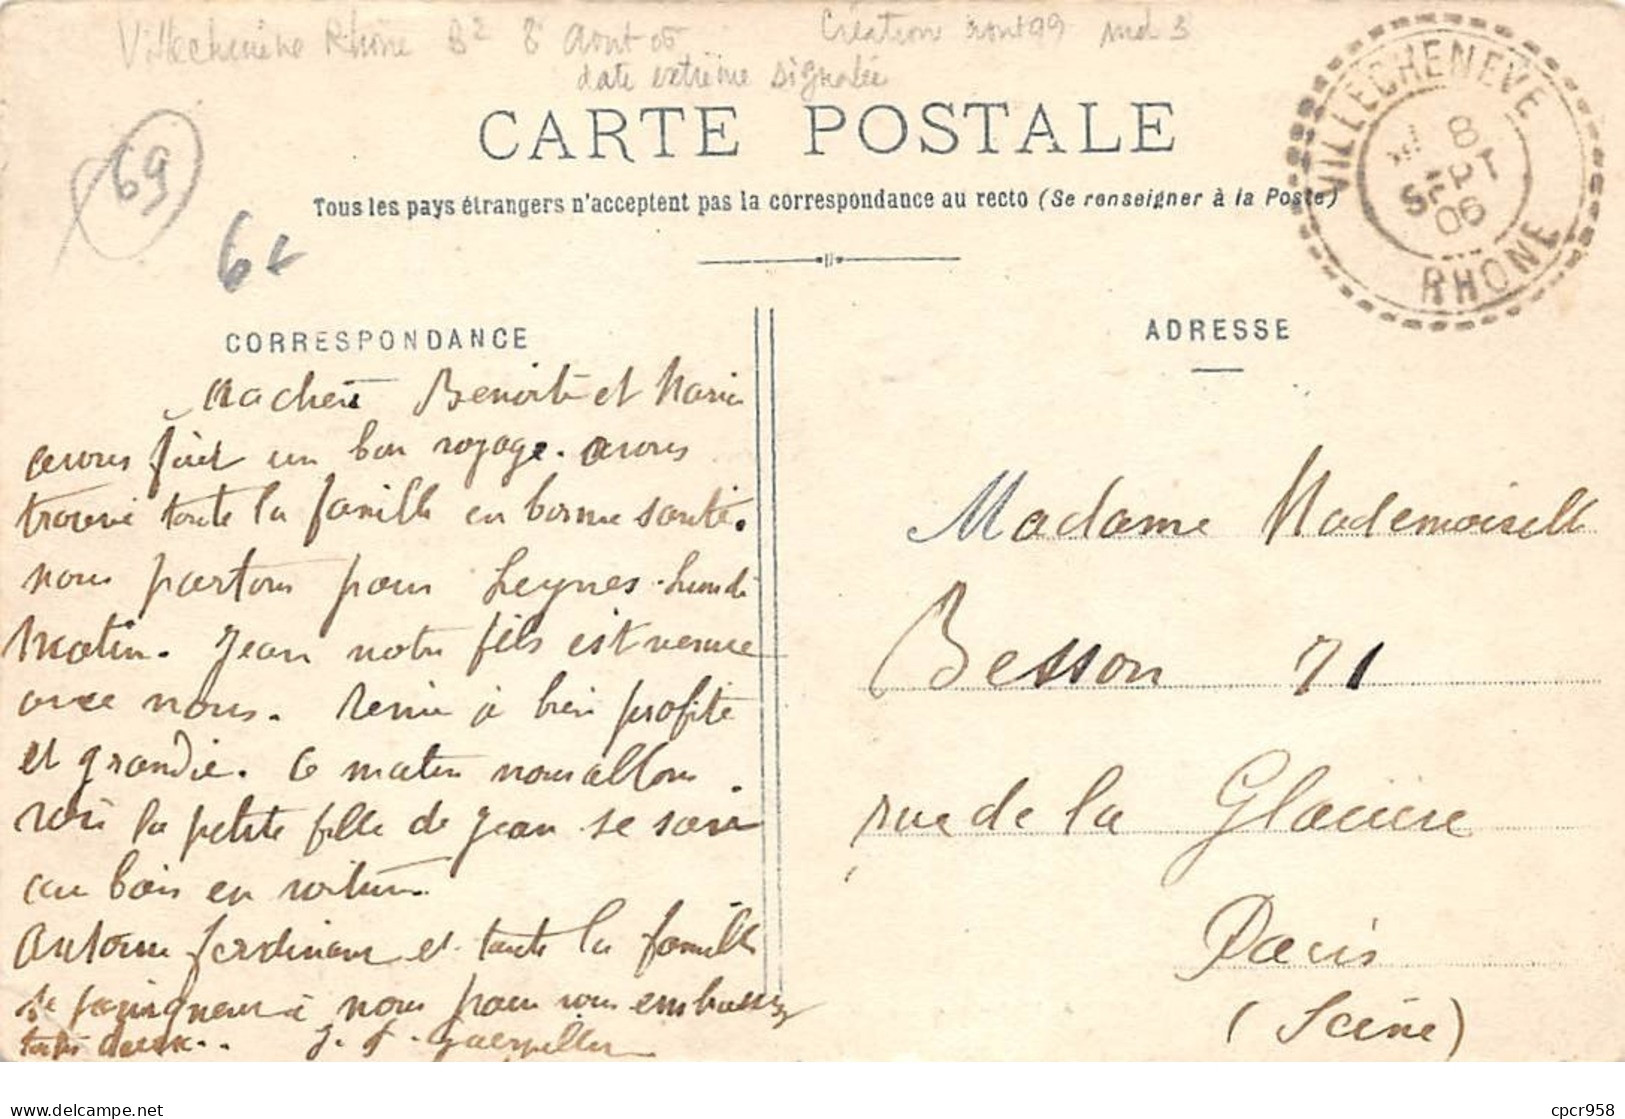 Villechenève Rhône B2 8 Aout 06 Création aout 99 md 3
date extrême signalée
CARTE POSTALE
Tous les pays étrangers n'acceptent pas la correspondance au recto (Se renseigner à la Poste)
VILLECHENEVE
8
SEPT
06
RHONE
69
6
CORRESPONDANCE
ADRESSE
Benoite et Marie
avons fait un bon voyage. avons
trouvé toute la famille en bonne santé.
nous partons pour Leynes. Lundi
Matin. Jean notre fils est venue
avec nous. Renée à bien profité
et grandie. Ce matin nous allons
voir la petite fille de Jean se soir
au bois en voiture.
Antoine Ferdinand et toute la famille
se joigneur à nous pour vous embrasser
toutes deux.. J. F.
Madame Mademoiselle
Besson 71
rue de la Glacière
Paris
(Seine)
cpcr958